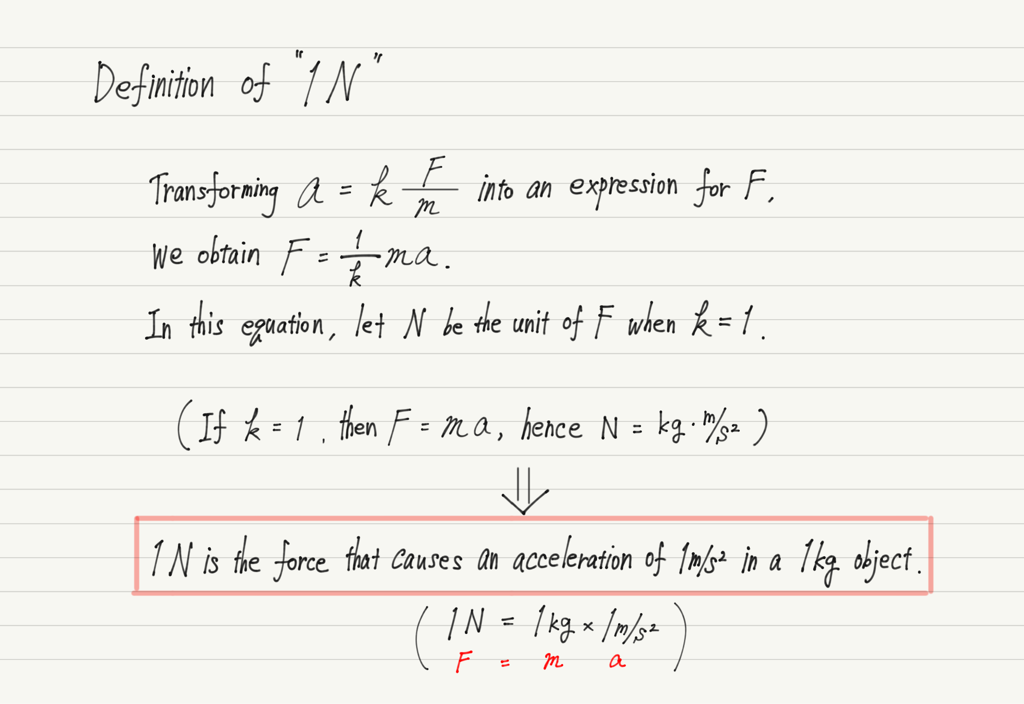 Definition of "1N"
Transforming a = k F/m into an expression for F,
We obtain F = 1/k ma.
In this equation, let N be the unit of F when k = 1.
(If k = 1, then F = ma, hence N = kg・m/s²)
⇓
1N is the force that causes an acceleration of 1m/s² in a 1kg object.
(1N = 1kg × 1m/s²
F = m a)